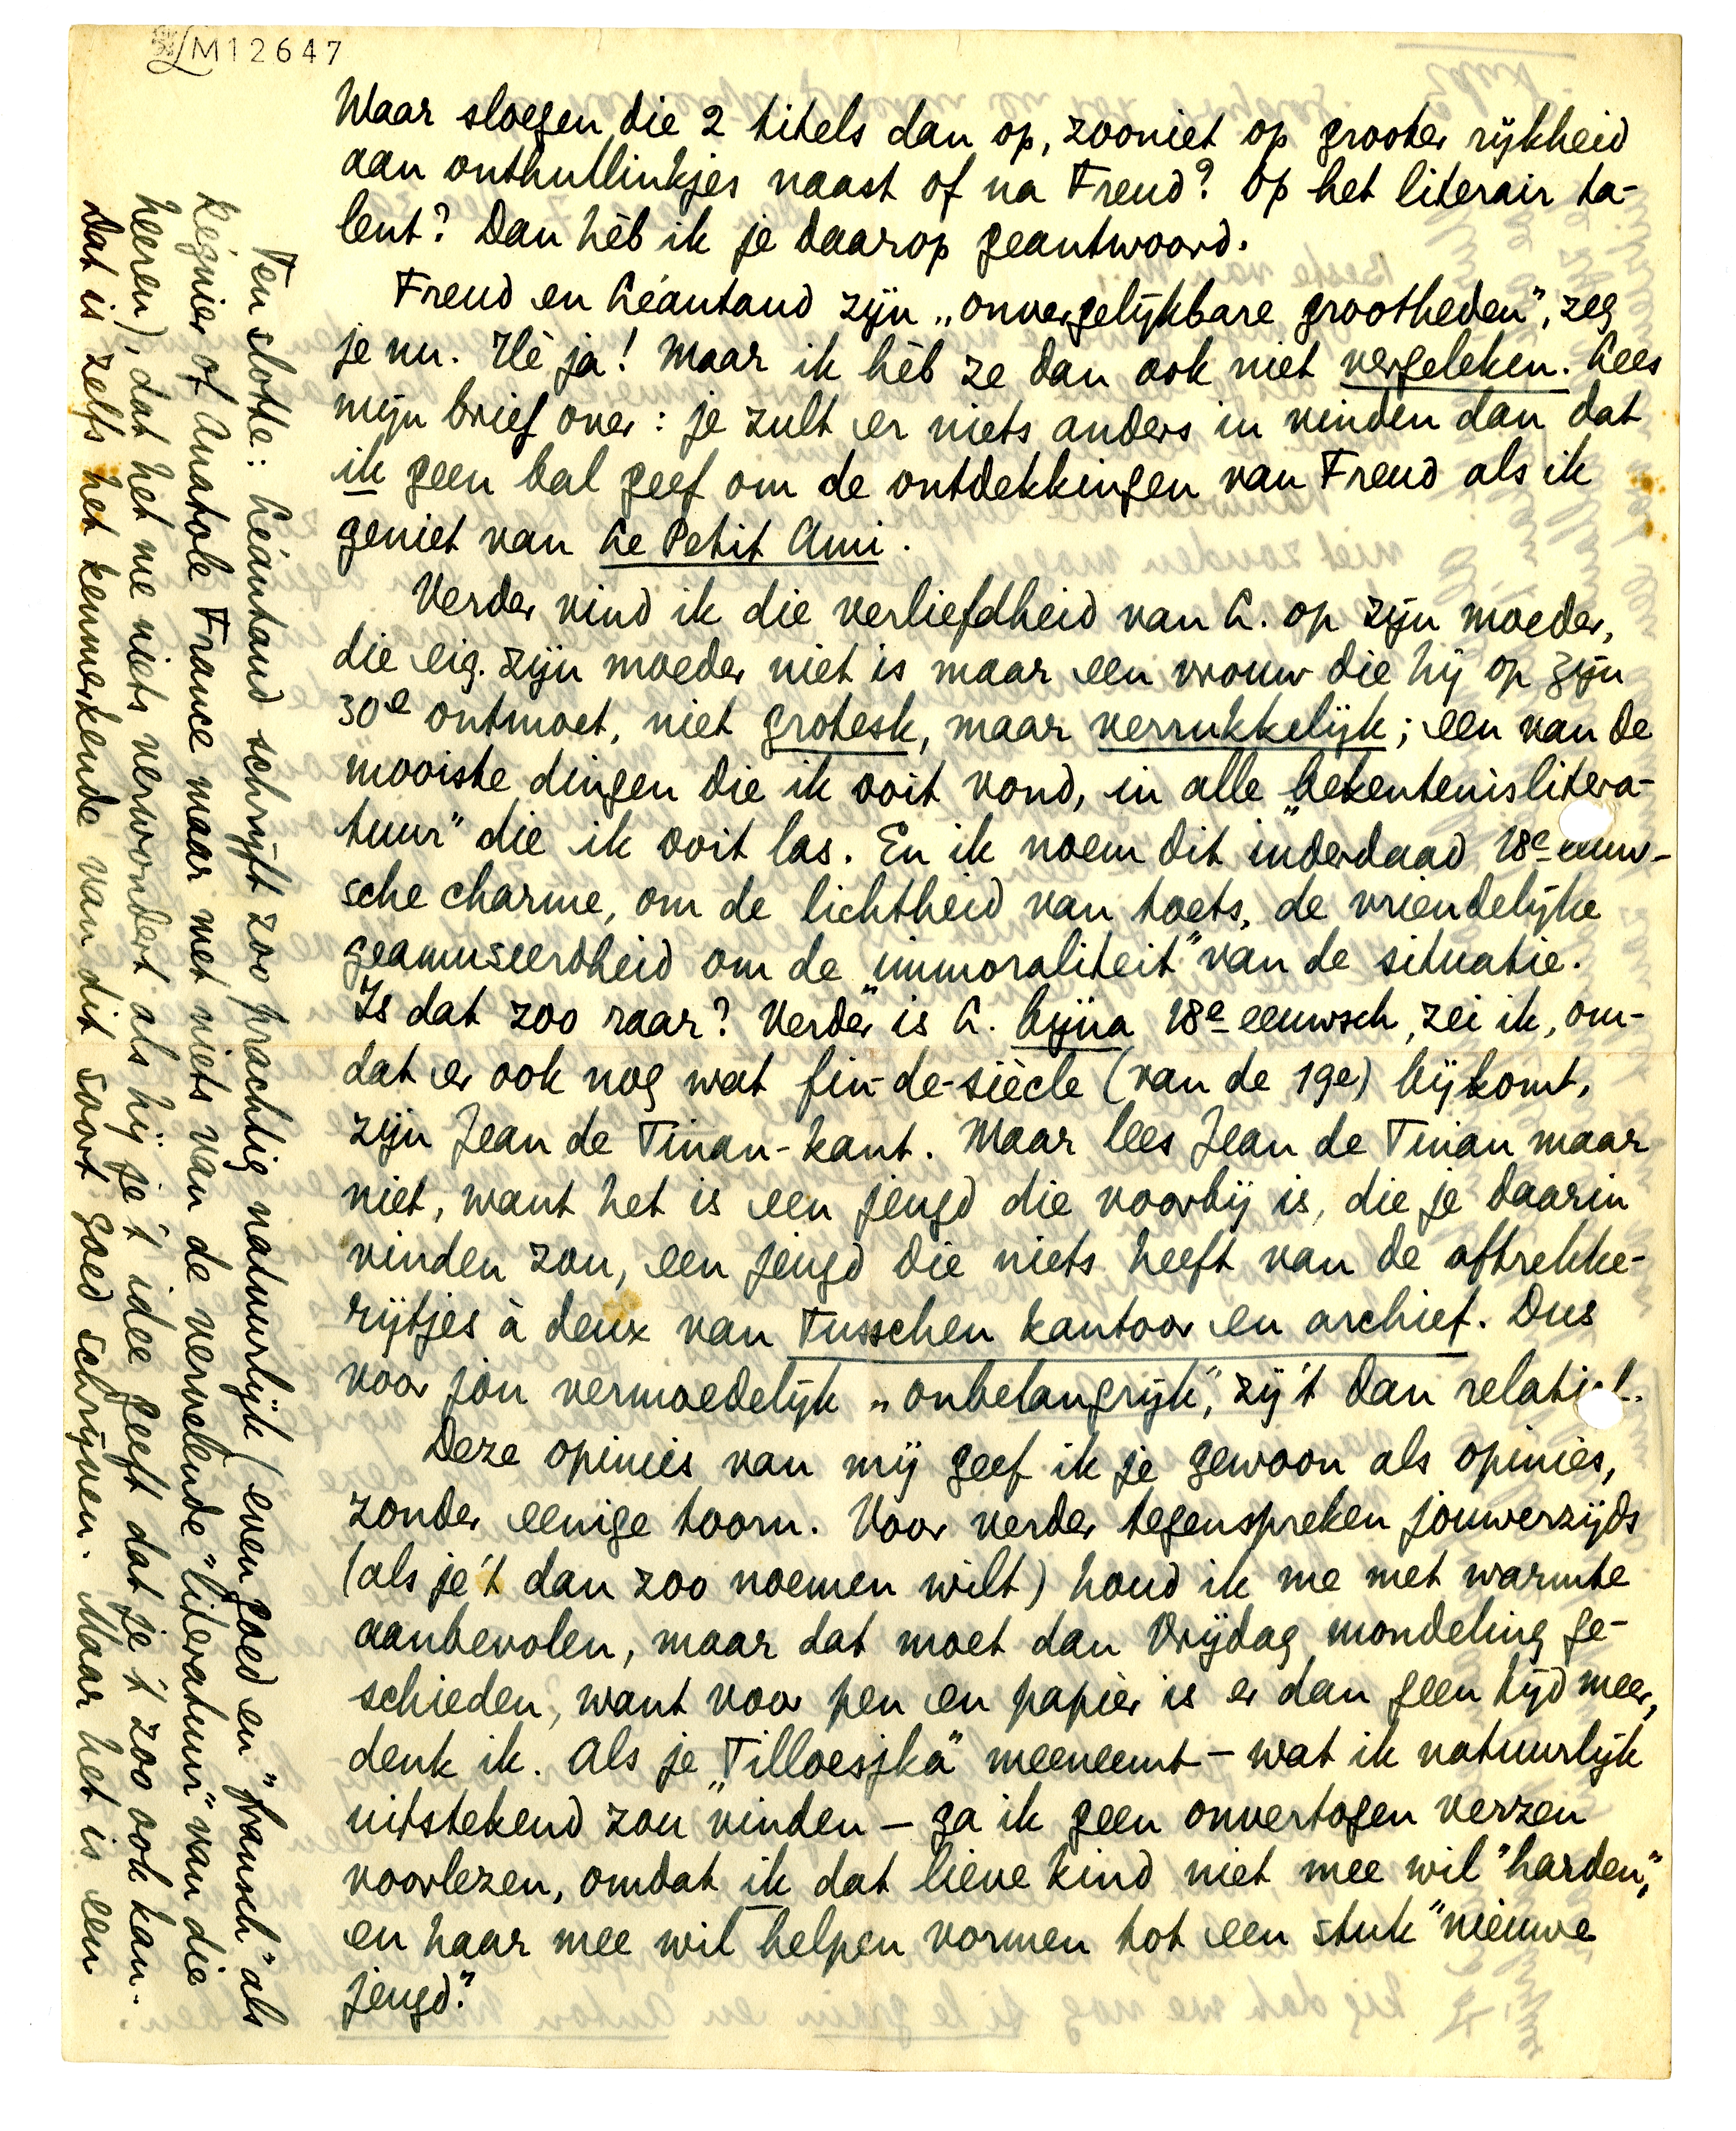 LM12647
Waar sloegen die 2 titels dan op, zooniet op grooter rijkheid
aan onthullinkjes naast of na Freud? Op het literair ta-
lent? Dan hèb ik je daarop geantwoord.
Freud en Léautaud zijn „onvergelijkbare grootheden", zeg
je nu. Hè ja! Maar ik hèb ze dan ook niet vergeleken. Lees
mijn brief over: je zult er niets anders in vinden dan dat
ik geen bal geef om de ontdekkingen van Freud als ik
geniet van Le Petit Ami.
Verder vind ik die verliefdheid van L. op zijn moeder,
die eig. zijn moeder niet is maar een vrouw die hij op zijn
30e ontmoet, niet grotesk, maar verrukkelijk; een van de
mooiste dingen die ik ooit vond, in alle „bekentenislitera-
tuur" die ik ooit las. En ik noem dit inderdaad 18e eeuw-
sche charme, om de lichtheid van toets, de vriendelijke
geamuseerdheid om de „immoraliteit" van de situatie.
Is dat zoo raar? Verder is L. bijna 18e eeuwsch, zei ik, om-
dat er ook nog wat fin-de-siècle (van de 19e) bijkomt,
zijn Jean de Tinan-kant. Maar lees Jean de Tinan maar
niet, want het is een jeugd die voorbij is, die je daarin
vinden zou, een jeugd die niets heeft van de aftrekke-
rijtjes à deux van Tusschen kantoor en archief. Dus
voor jou vermoedelijk „onbelangrijk", zij 't dan relatief.
Deze opinies van mij geef ik je gewoon als opinies,
zonder eenige toorn. Voor verder tegenspreken jouwerzijds
(als je 't dan zoo noemen wilt) houd ik me met warmte
aanbevolen, maar dat moet dan Vrijdag mondeling ge-
schieden, want voor pen en papier is er dan geen tijd meer,
denk ik. Als je „Tilloesjka" meeneemt – wat ik natuurlijk
uitstekend zou vinden – ga ik geen onvertogen verzen
voorlezen, omdat ik dat lieve kind niet mee wil "harden",
en haar mee wil helpen vormen tot een stuk "nieuwe
jeugd".
Ten slotte: Léautaud schrijft zoo prachtig natuurlijk (even goed en "fransch" als
Régnier of Anatole France maar met niets van de vervelende "literatuur" van die
heeren), dat het me niets verwondert als hij je 't idee geeft dat je 't zoo ook kan.
Dat is zelfs het kenmerkende van dit soort goed schrijven. Maar het is een